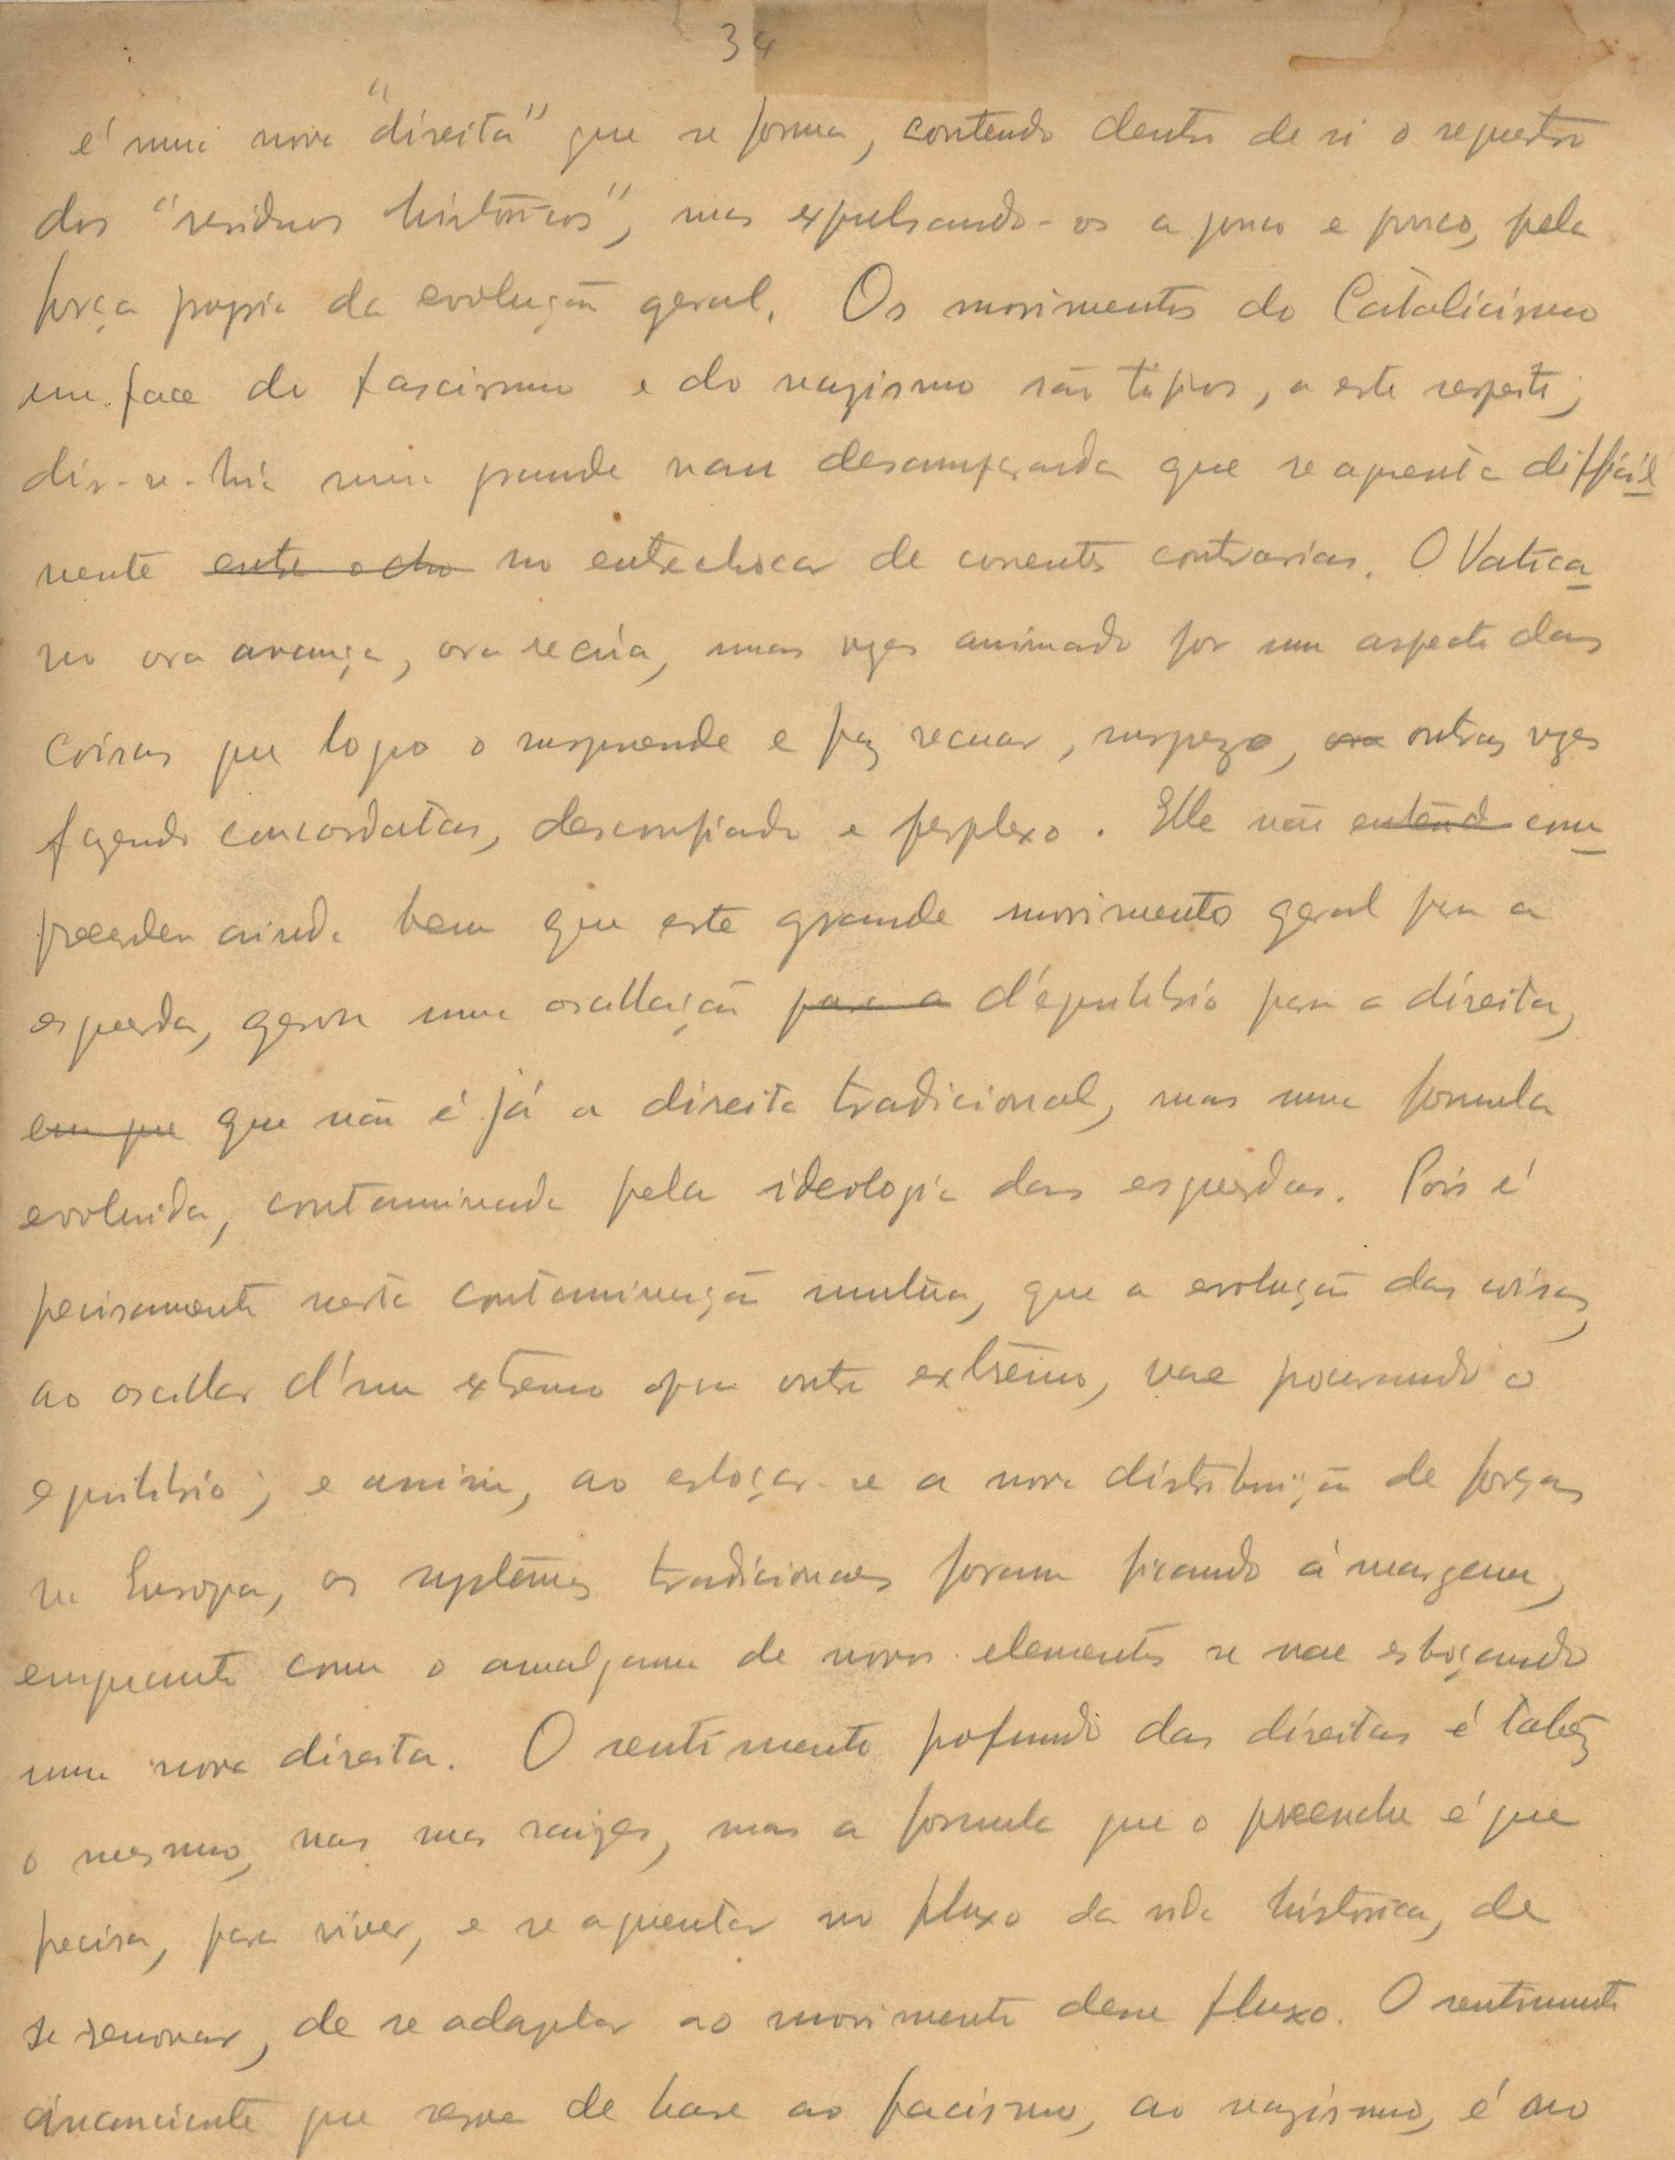 34
é uma nova "direita" que se forma, contendo dentro de si o sequestro
dos "residuos históricos", mas expulsando-os a pouco e pouco, pela
força propria da evolução geral. Os movimentos do Catolicismo
em face do fascismo e do nazismo são típicos, a este respeito;
dir-se-hia uma grande nau desamparada que se aguenta difficil
mente entre o cho no entrechocar de correntes contrarias. O Vatica
no ora avança, ora recúa, umas vezes animado por um aspecto das
coisas que logo o surprende e faz recuar, surpezo, ora outras vezes
fazendo concordatas, desconfiado e perplexo. Elle não entend com
preendeu ainda bem que este grande movimento geral para a
esquerda, gerou uma oscillação para a d'équilibrio para a direita,
em que que não é já a direita tradicional, mas uma formula
evoluida, contaminada pela ideologia das esquerdas. Pois é
precisamente nesta contaminação mutua, que a evolução das coisas,
ao oscillar d'um extremo para outro extremo, vae procurando o
equilibrio; e assim, ao esboçar-se a nova distribuição de forças
na Europa, os systemas tradicionaes foram ficando á margem,
emquanto com o amalgama de novos elementos se vae esboçando
uma nova direita. O sentimento profundo das direitas é talvez
o mesmo, nas suas raizes, mas a formula que o preenche é que
precisa, para viver, e se aguentar no fluxo da vida histórica, de
se renovar, de se adaptar ao movimento desse fluxo. O sentimento
inconsciente que serve de base ao facismo, ao nazismo, é no